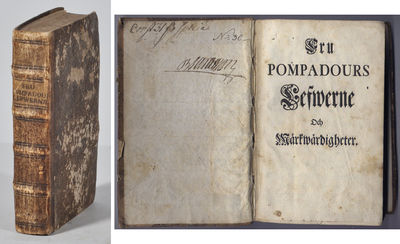 FRU
POMPADOU
LEFWERNE
No 30
Fru
POMPADOURS
Lefwerne
Och
Märkwärdigheter.